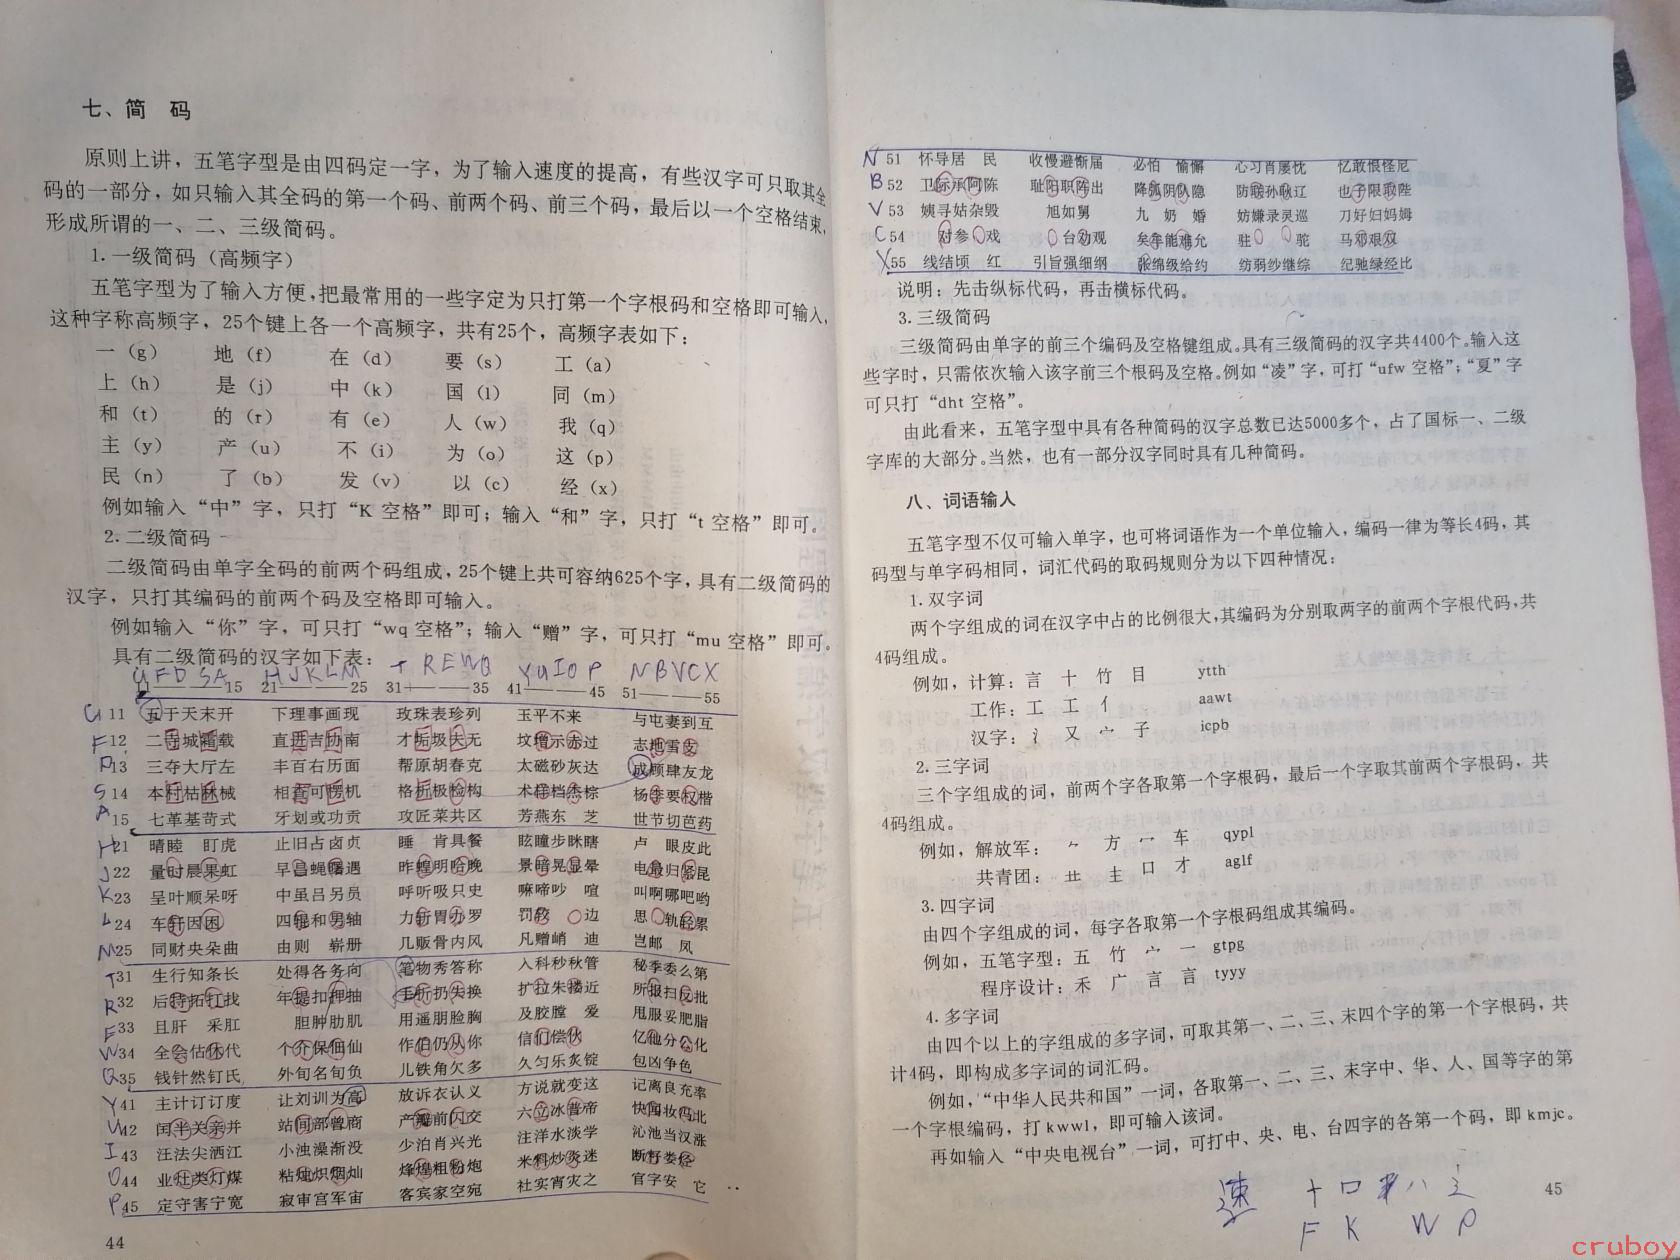 七、简 码
原则上讲，五笔字型是由四码定一字，为了输入速度的提高，有些汉字可只取其全
码的一部分，如只输入其全码的第一个码、前两个码、前三个码，最后以一个空格结束，
形成所谓的一、二、三级简码。
1.一级简码（高频字）
五笔字型为了输入方便，把最常用的一些字定为只打第一个字根码和空格即可输入，
这种字称高频字，25个键上各一个高频字，共有25个，高频字表如下：
一（g） 地（f） 在（d） 要（s） 工（a）
上（h） 是（j） 中（k） 国（l） 同（m）
和（t） 的（r） 有（e） 人（w） 我（q）
主（y） 产（u） 不（i） 为（o） 这（p）
民（n） 了（b） 发（v） 以（c） 经（x）
例如输入“中”字，只打“K 空格”即可；输入“和”字，只打“t 空格”即可。
2.二级简码
二级简码由单字全码的前两个码组成，25个键上共可容纳625个字，具有二级简码的
汉字，只打其编码的前两个码及空格即可输入。
例如输入“你”字，可只打“wq 空格”；输入“赠”字，可只打“mu 空格”即可。
具有二级简码的汉字如下表：
G F D S A H J K L M T R E W Q Y U I O P N B V C X
11——15 21——25 31——35 41——45 51——55
G 11 五于天末开 下理事画现 玫珠表珍列 玉平不来 与屯妻到互
F 12 二寺城霜载 直进吉协南 才垢圾夫无 坟增示赤过 志地雪支
D 13 三夺大厅左 丰百右历面 帮原胡春克 太磁砂灰达 成顾肆友龙
S 14 本村枯林械 相查可楞机 格析极检构 术样档杰棕 杨李要权楷
A 15 七革基苛式 牙划或功贡 攻匠菜共区 芳燕东 芝 世节切芭药
H 21 睛睦 盯虎 止旧占卤贞 睡 肯具餐 眩瞳步眯瞎 卢 眼皮此
J 22 量时晨果虹 早昌蝇曙遇 昨蝗明哈晚 景暗晃显晕 电最归紧昆
K 23 呈叶顺呆呀 中虽吕另员 呼听吸只史 嘛啼吵 喧 叫啊哪吧哟
L 24 车轩因困 四辊和男轴 力斩胃办罗 罚较 边 思 轨轻累
M 25 同财央朵曲 由则 崭册 几贩骨内风 凡赠峭 迪 岂邮 凤
T 31 生行知条长 处得各务向 笔物秀答称 入科秒秋管 秘季委么第
R 32 后持拓打找 年提扣押抽 手折扔失换 扩拉朱搂近 所报扫反批
E 33 且肝 采肛 胆肿肋肌 用遥朋脸胸 及胶膛 爱 甩服妥肥脂
W 34 全会估休代 个介保佃仙 作伯仍从你 信们偿伙 亿他分公化
Q 35 钱针然钉氏 外旬名甸负 儿铁角欠多 久匀乐炙锭 包凶争色
Y 41 主计订订度 让刘训为高 放诉衣认义 方说就变这 记离良充率
U 42 闰半关亲并 站间部曾商 产瓣前闪交 六立冰普帝 快闻妆冯北
I 43 汪法尖洒江 小浊澡渐没 少泊肖兴光 注洋水淡学 沁池当汉涨
O 44 业灶类灯煤 粘烛炽烟灿 烽煌粗粉炮 米料炒炎迷 断籽娄烃
P 45 定守害宁宽 寂审宫军宙 客宾家空宛 社实宵灾之 官字安 它
44
N 51 怀导居 民 收慢避惭届 必怕 愉懈 心习肖屡忱 忆敢恨怪尼
B 52 卫际承阿陈 耻阳职阵出 降孤阴队隐 防联孙耿辽 也子限取陛
V 53 姨寻姑杂毁 旭如舅 九 奶 婚 妨嫌录灵巡 刀好妇妈姆
C 54 对参 戏 台劝观 矣牟能难允 驻 驼 马邓艰双
X 55 线结顷 红 引旨强细纲 张绵级给约 纺弱纱继综 纪驰绿经比
说明：先击纵标代码，再击横标代码。
3.三级简码
三级简码由单字的前三个编码及空格键组成。具有三级简码的汉字共4400个。输入这
些字时，只需依次输入该字前三个根码及空格。例如“凌”字，可打“ufw 空格”；“夏”字
可只打“dht 空格”。
由此看来，五笔字型中具有各种简码的汉字总数已达5000多个，占了国标一、二级
字库的大部分。当然，也有一部分汉字同时具有几种简码。
八、词语输入
五笔字型不仅可输入单字，也可将词语作为一个单位输入，编码一律为等长4码，其
码型与单字码相同，词汇代码的取码规则分为以下四种情况：
1.双字词
两个字组成的词在汉字中占的比例很大，其编码为分别取两字的前两个字根代码，共
4码组成。
例如，计算：言 十 竹 目 ytth
工作：工 工 亻 aawt
汉字：氵 又 宀 子 icpb
2.三字词
三个字组成的词，前两个字各取第一个字根码，最后一个字取其前两个字根码，共
4码组成。
例如，解放军：⺈ 方 冖 车 qypl
共青团：龷 龶 口 才 aglf
3.四字词
由四个字组成的词，每字各取第一个字根码组成其编码。
例如，五笔字型：五 竹 宀 一 gtpg
程序设计：禾 广 言 言 tyyy
4.多字词
由四个以上的字组成的多字词，可取其第一、二、三、末四个字的第一个字根码，共
计4码，即构成多字词的词汇码。
例如，“中华人民共和国”一词，各取第一、二、三、末字中、华、人、国等字的第
一个字根编码，打 kwwl，即可输入该词。
再如输入“中央电视台”一词，可打中、央、电、台四字的各第一个码，即 kmjc。
速 十 口 八 辶
F K W P
45
cruboy